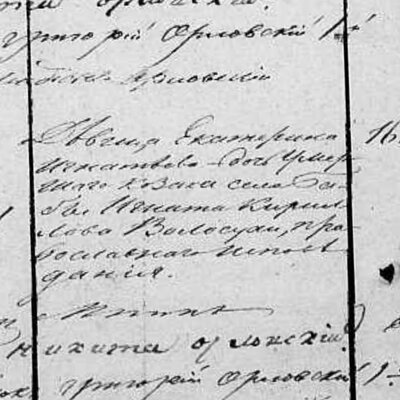 Григорій Орловскій
Орловскій
Дѣвица Екатерина
Игнатьева дочь умер-
шаго козака села Ба-
бы Игната Кирил-
лова Волосуна, пра-
вославнаго испове-
данія.
16
Никита Орловскій
Григорій Орловскій